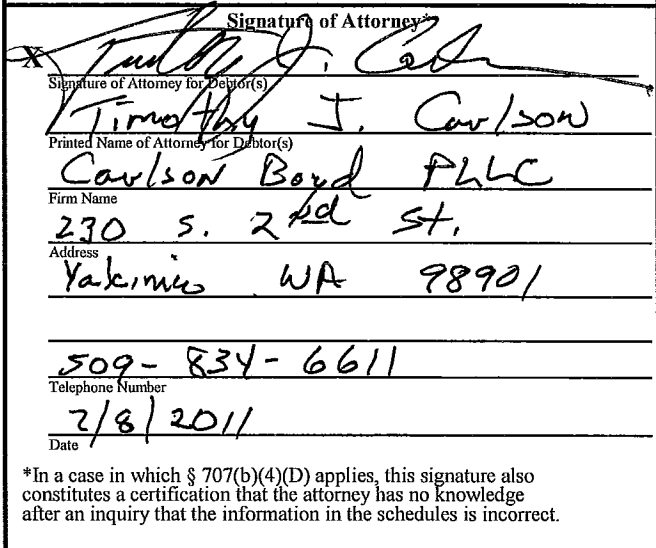 Signature of Attorney*
X Timothy J. Carlson
Signature of Attorney for Debtor(s)
Timothy J. Carlson
Printed Name of Attorney for Debtor(s)
Carlson Boyd PLLC
Firm Name
230 S. 2nd St.
Address
Yakima WA 98901
509-834-6611
Telephone Number
2/8/2011
Date
*In a case in which § 707(b)(4)(D) applies, this signature also
constitutes a certification that the attorney has no knowledge
after an inquiry that the information in the schedules is incorrect.